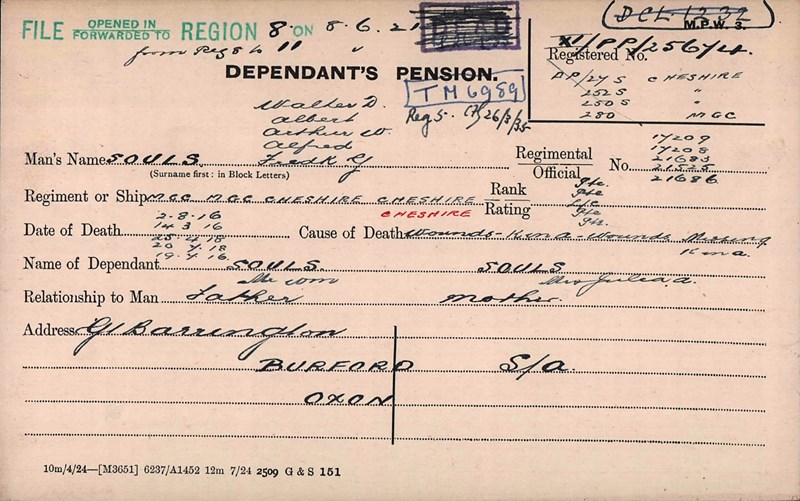 FILE OPENED IN FORWARDED TO REGION 8 ON 8.6.21
from Reg 8 to 11 "
DEAD
DCL 1232
M.P.W. 3.
XI/PP/25674
Registered No.
AP/275 CHESHIRE
2525 "
2505 "
280 MGC
DEPENDANT'S PENSION.
TM6989
Reg 5. (7) 26/3/35
Walter D.
Albert
Arthur W.
Alfred
Man's Name SOULS. Fredk G
(Surname first: in Block Letters)
Regimental Official No.
17209
17208
21683
21525
21686
Regiment or Ship MGC MGC CHESHIRE CHESHIRE
CHESHIRE
Rank Rating
Pte
Pte
L/c
Pte
Pte.
Date of Death
2.8.16
14 3 16
25 4 18
20 4 18
19.4 16
Cause of Death Wounds - K in a - Wounds Missing
K in a.
Name of Dependant SOULS. SOULS
Mr Wm Mrs Julia A.
Relationship to Man Father mother.
Address Gt Barrington
BURFORD S/a.
OXON
10m/4/24—[M3651] 6237/A1452 12m 7/24 2509 G & S 151